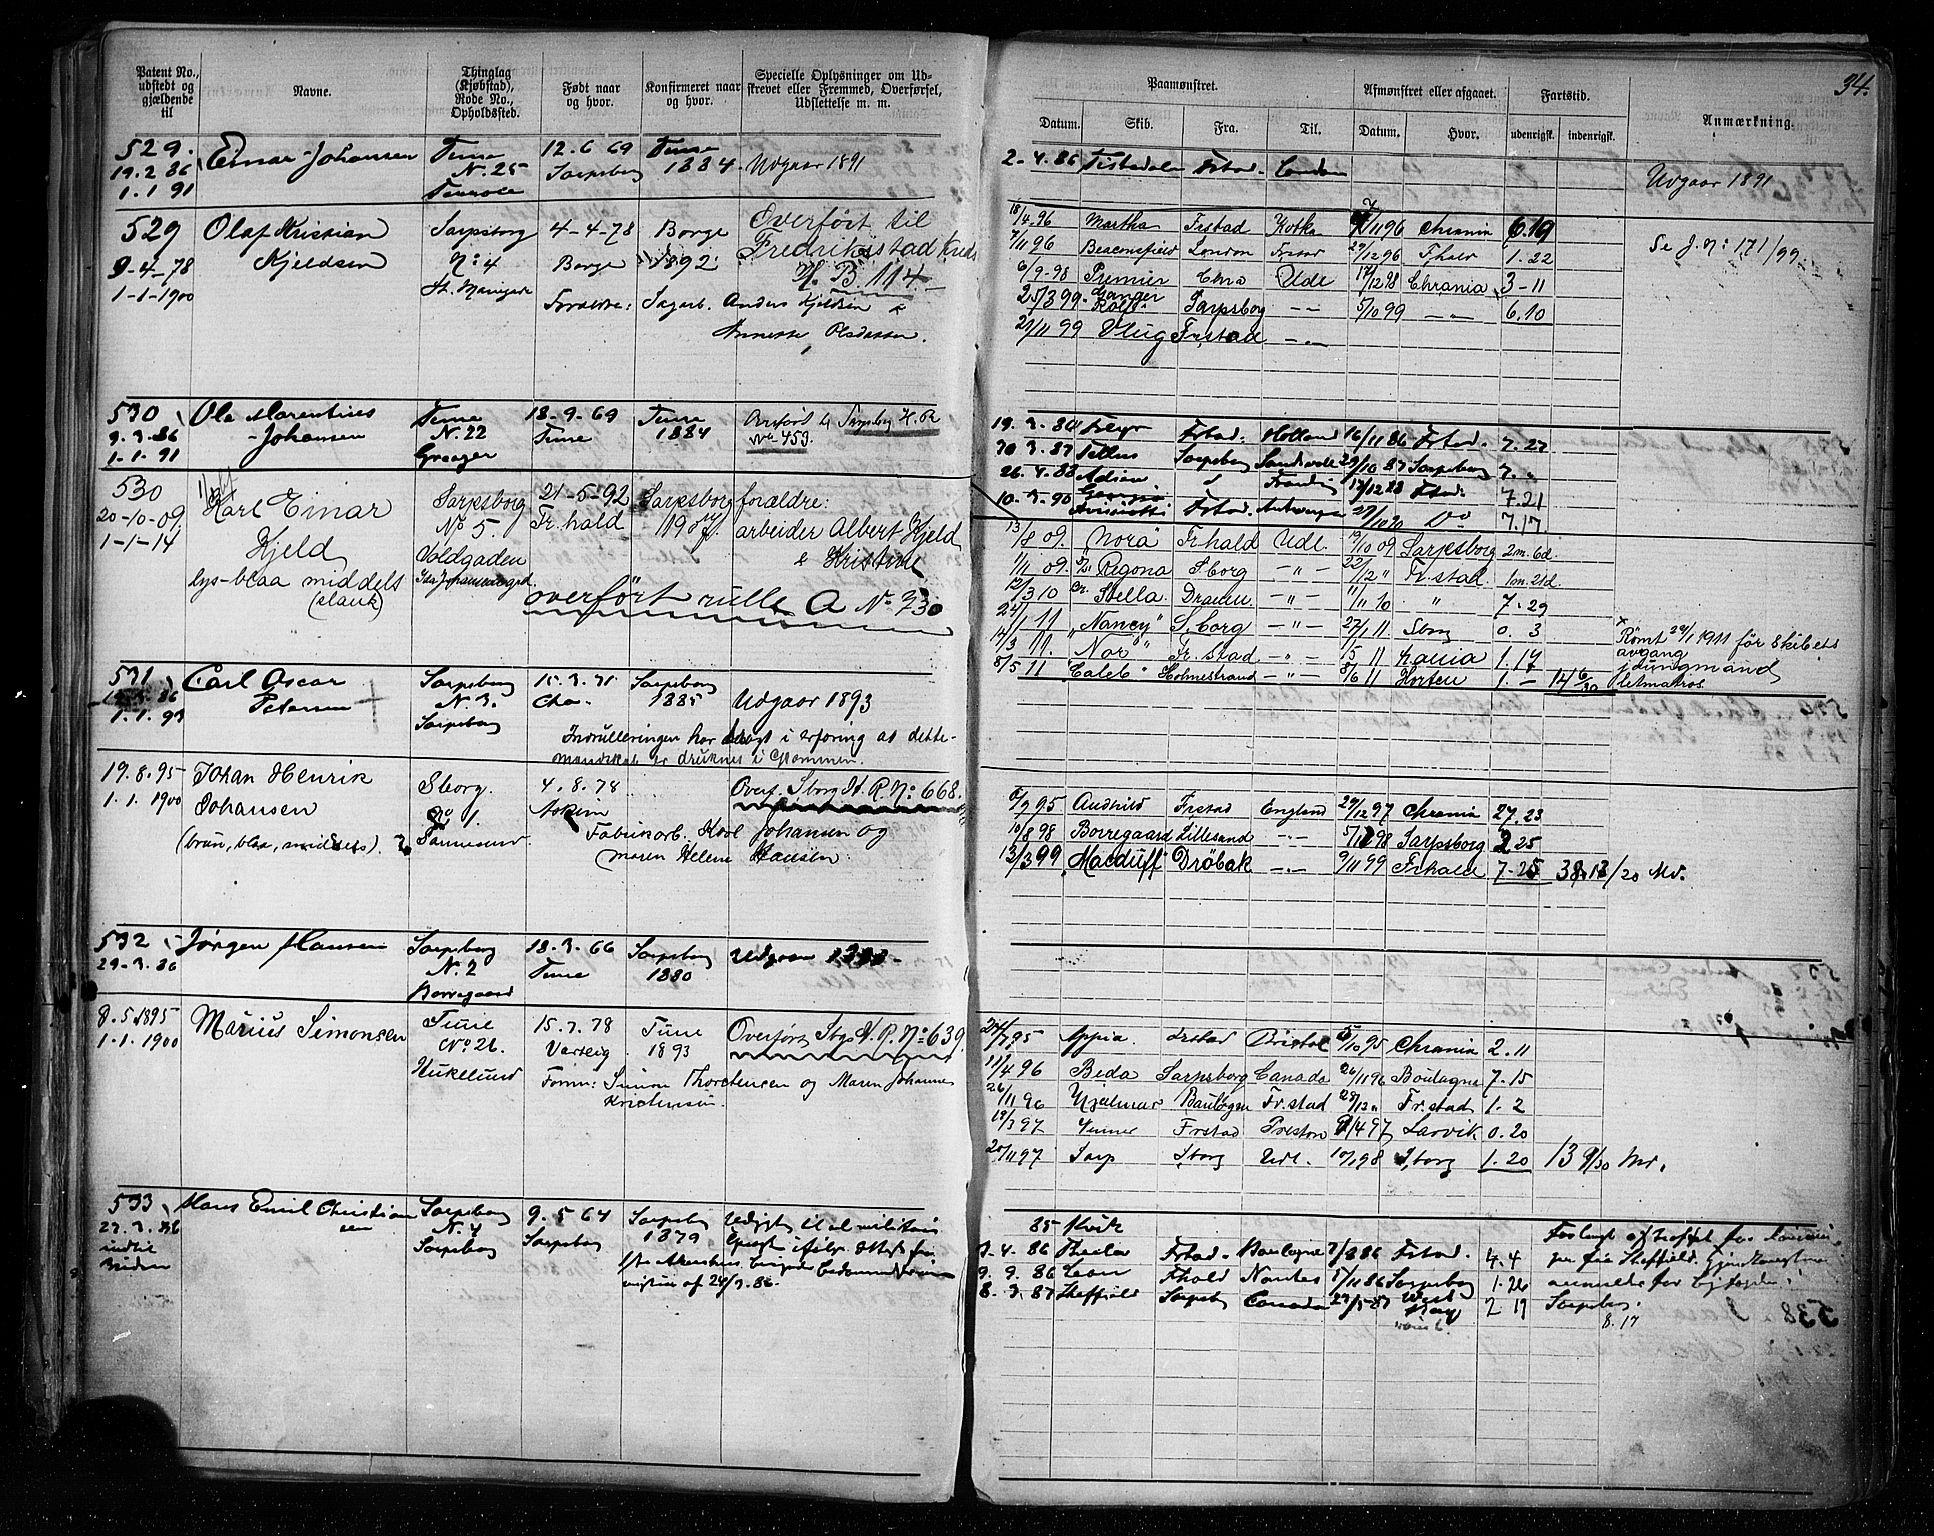 34.
Patent No., udstedt og gjældende til
Navne.
Thinglag (Kjøbstad), Rode No., Opholdssted.
Født naar og hvor.
Konfirmeret naar og hvor.
Specielle Oplysninger om Udskrevet eller Fremmed, Overførsel, Udslettelse m. m.
Paamønstret.
Afmønstret eller afgaaet.
Fartstid.
Anmærkning.
Datum. Skib. Fra. Til. Datum. Hvor. udenrigsk. indenrigsk.
529. Einar Johansen Tune 12.6 69 Tune
19.2 86 N. 25 Sarpsborg 1884 Udgaar 1891
1.1 91
2-4.86 Frstad London
Udgaar 1891
529 Olaf Kristian Sarpsborg 4-4-78 Borge Overført til
9-4-78 Kjeldsen N: 4 Borge 1892 Fredriksstad Kreds
1-1-1900 H. B. 114
Forældre: Sagarb. Anders Kjeldsen &
Annette Olsdatter.
18/4.96 Martha Frstad Kotka 7/11 96 Chrania 6.19
7/11 96 Beaconsfield London Frstad 29/12 96 Fhald 1.22
6/9-98 Premier Chra Udl 17/12 98 Chrania 3-11
25/3 99 Ganger Rolf Sarpsborg -"- 5/10 99 -"- 6.10
27/11 99 Vlug Frstad -"-
Se J. N: 171/99
530 Ole Marentius Tune 18-9-69 Tune Overført t. Sarpsborg H. R.
9.3.86 Johansen N. 22 Tune 1884 No 459.
1.1.91 Greager
19.3.86 Frstad. Holland 16/11 86 Frstad. 7.27
30 3.87 Tellus Sarpsborg 29/10 87 Sarpsborg 7.
26.4.88 Adrian 17/12 88 Fstad. 7.21
10.3.90 Frstad. Antwerpen 27/10 90 Do 7.17
530 Karl Einar Sarpsborg 21-5-92 Sarpsborg forældre:
20-10-09 Kjeld No 5. Fr.hald 1907 arbeider Albert Kjeld
1-1-14 lys-blaa middels Voldgaden & Kristine
(slank) overført rulle A No 730
13/8 09. "Nora" Fr.hald Udl. 19/10 09 Sarpsborg 2m. 6d.
1/11 09. Regona S.borg -"- 22/12 " Fr.stad. 1m. 21d.
12/3 10 Stella. Dramm. -"- 11/11 10 " 7.29
24/1 11 "Nancy" S.borg -"- 27/1 11 Sborg 0. 3
14/3 11. "Nor" Fr.stad -"- 1/5 11 1.17
8/5 11 "Caleb" Holmestrand -"- 8/6 11 Horten 1. - 14 6/30
x Rømt 29/1 1911 før skibets
avgang
jdungmand
letmatros.
531 Carl Oscar Sarpsborg 15.3.71 Sarpsborg
86 Petersen + N. 3. Cha. 1885 Udgaar 1893
1.1.93 Sarpsborg
Indrulleringen har bragt i erfaring at dette
mandskab er druknet i Glommen.
19.8.95 Johan Henrik Sborg. 4.8.78 Overf. Sborg H. R. N: 668.
1.1.1900 Johansen No 1. Askim
(brun, blaa, middels). Fabrikarb. Karl Johansen og
Maren Helene Hansen.
6/9 95 Audhild Frstad England 29/12 97 Chrania 27.23
10/8 98 Borregaard Lillesand -"- 5/12 98 Sarpsborg 2 25
13/3 99 Macduff Drøbak -"- 9/11 99 Frhald 7-25 38 13/20 Md.
532 Jørgen Hansen Sarpsborg 18.3.66 Sarpsborg Udgaar
29.3.86 N. 2 Tune 1880
Borregaard
8.5.1895 Marius Simonsen Tune 15.7.78 Tune Overført Sbg H. R. N: 639.
1.1.1900 No 21. Varteig 1893
Hukelund Foræ: Simon Thorstensen og Maren Johanne
Kristensen.
24/7 95 Appia. Frstad Bristol 5/10 95 Chrania 2.11
11/4 96 Beda Sarpsborg Canada 26/11 96 Boulogne 7.15
26/11 96 Hjalmar Boulogne Fr.stad Fr.stad 1.2
19/3 97 Frstad Preston 9/4 97 Larvik 0.20
20/11 97 Sarp S.borg Udl. 10/1 98 S.borg 1.20 13 9/30 Md.
533 Hans Emil Christian Sarpsborg 9.5 64 Sarpsborg
27.3.86 sen N. 4 Sarpsborg 1879
indtil Sarpsborg
85 Kvik
7.4.86 Thecla Frstad. Boulogne 86 Frstad. 4.4
9.9.86 Leon Fhald Nantes 5/11 86 Sarpsborg 1.26
8.3.87 Sheffield Sarpsb. Canada West Hay 2 19 Sarpsborg.
8.17